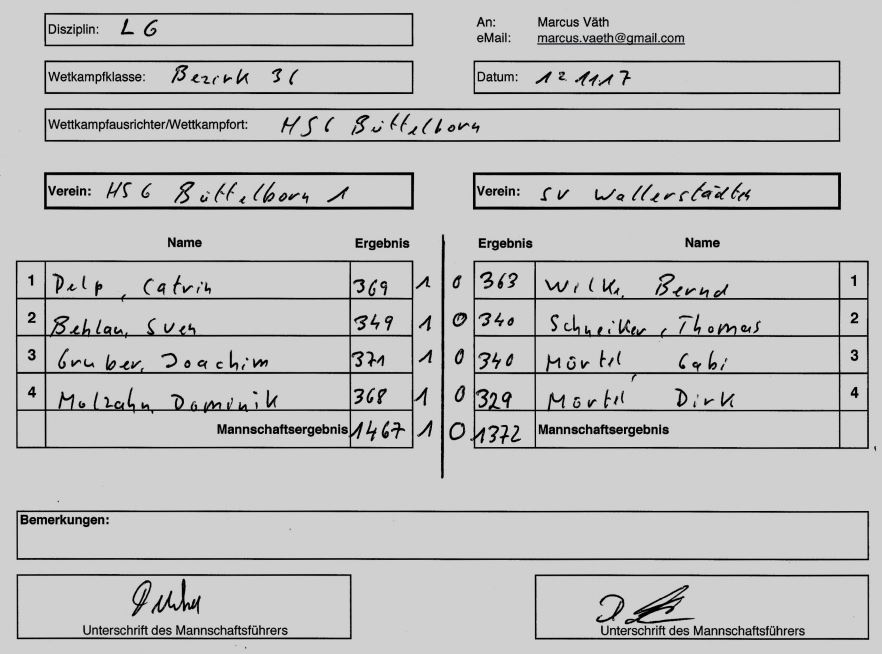 Disziplin: L G
An: Marcus Väth
eMail: marcus.vaeth@gmail.com
Wetkampfklasse: Bezirk 36
Datum: 12.11.17
Wettkampfausrichter/Wettkampfort: HSG Büttelborn
Verein: HSG Büttelborn 1
Verein: SV Wallerstädten
Name Ergebnis Ergebnis Name
1 Delp, Catrin 369 1 0 363 Wilke, Bernd 1
2 Behlau, Sven 349 1 0 340 Schneiker, Thomas 2
3 Gruber, Joachim 371 1 0 340 Mörtel, Gabi 3
4 Molzahn, Dominik 368 1 0 329 Mörtel Dirk 4
Mannschaftsergebnis 1467 1 0 1372 Mannschaftsergebnis
Bemerkungen:
Unterschrift des Mannschaftsführers
Unterschrift des Mannschaftsführers